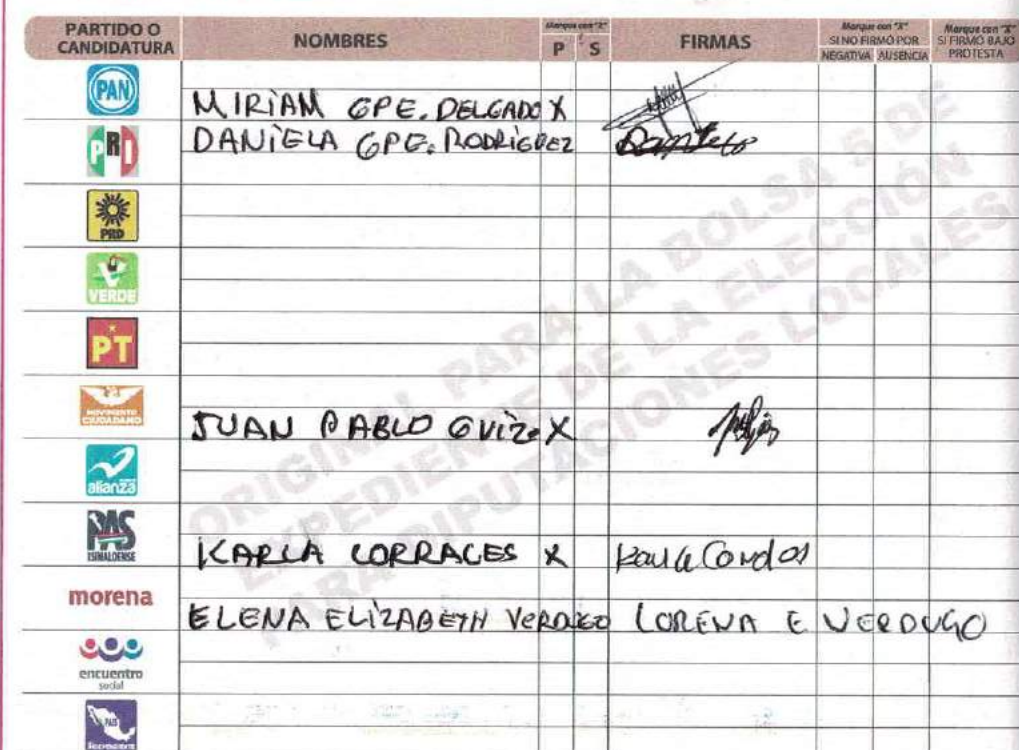 PARTIDO O CANDIDATURA NOMBRES Marque con "X" P S FIRMAS Marque con "X" SI NO FIRMÓ POR NEGATIVA AUSENCIA Marque con "X" SI FIRMÓ BAJO PROTESTA
PAN MIRIAM GPE. DELGADO X
PRI DANIELA GPE. RODRIGUEZ
PRD
VERDE
PT
MOVIMIENTO CIUDADANO JUAN PABLO GUIZ X
alianza
PAS SINALOENSE KARLA CORRALES X
morena ELENA ELIZABETH VERDUGO LORENA E VERDUGO
encuentro social
PAIS
ORIGINAL PARA LA BOLSA 5 DE
EXPEDIENTE DE LA ELECCIÓN
PARA DIPUTACIONES LOCALES